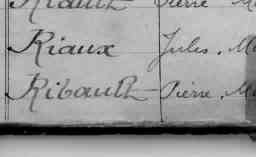 Pierre, M
Riaux Jules, M
Ribault Pierre, M